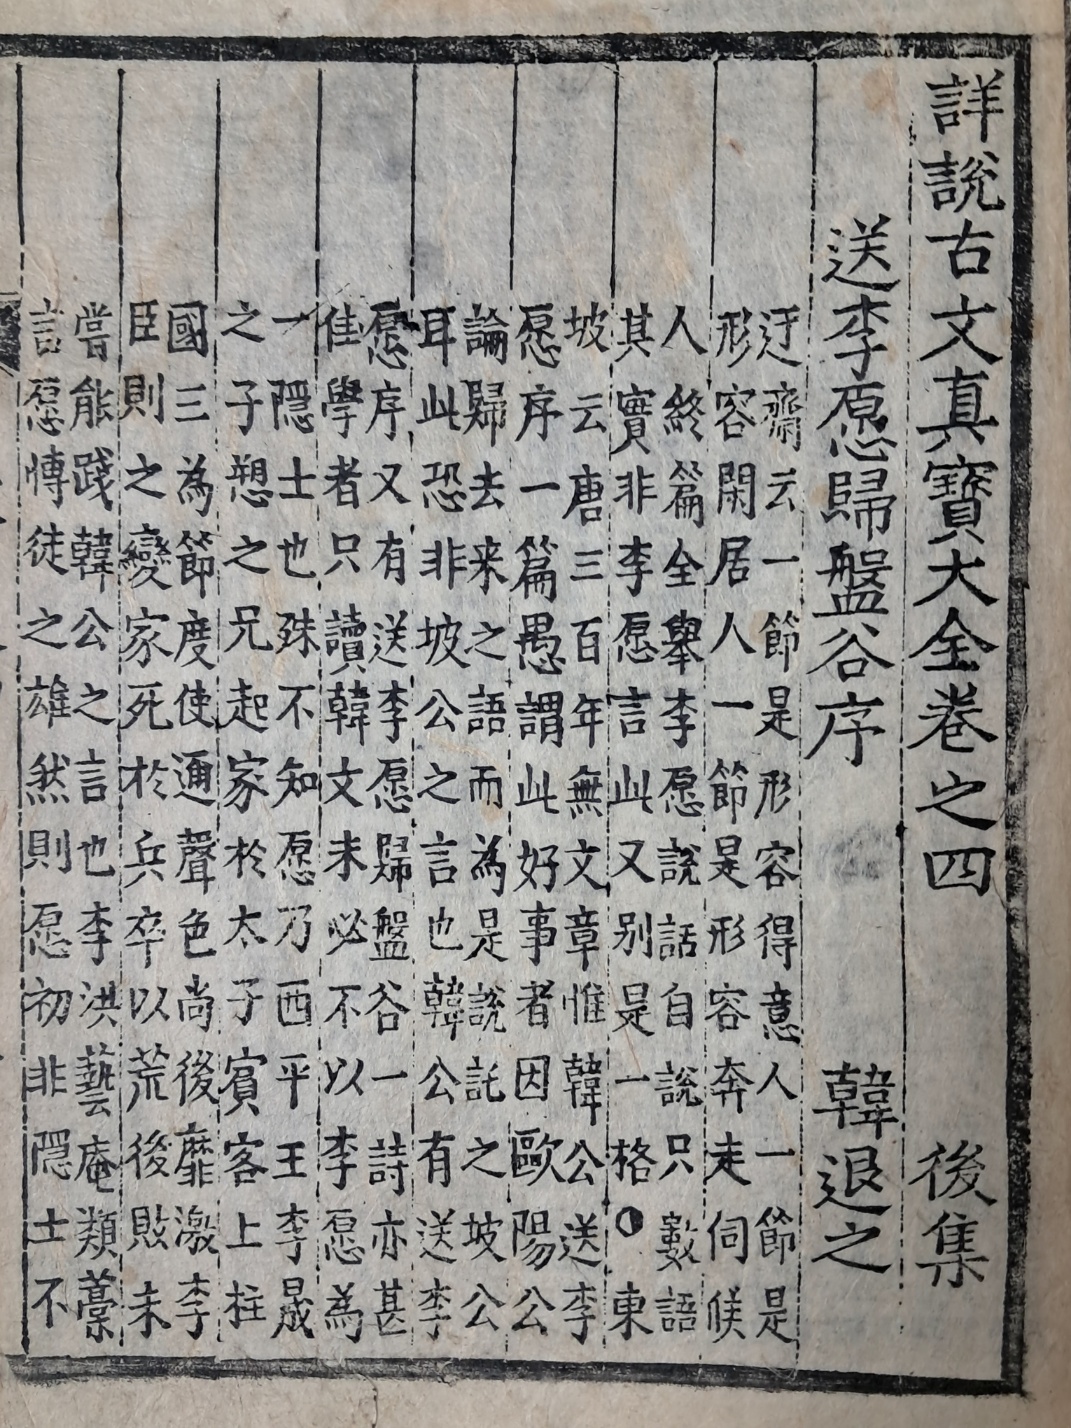 詳說古文真寶大全卷之四 後集
送李愿歸盤谷序 韓退之
迂齋云一節是形容得意人一節是
形容閑居人一節是形容奔走伺候
人終篇全舉李愿說話自說只數語
其實非李愿言此又别是一格◐東
坡云唐三百年無文章惟韓公送李
愿序一篇愚謂此好事者因歐陽公
論歸去来之語而為是說託之坡公
耳此恐非坡公之言也韓公有送李
愿序又有送李愿歸盤谷一詩亦甚
佳學者只讀韓文未必不以李愿為
一隱士也殊不知愿乃西平王李晟
之子愬之兄起家於太子賓客上柱
國三為節度使通聲色尚後靡激李
臣則之變家死於兵卒以荒後敗未
嘗能踐韓公之言也李洪藝庵類藁
言愿慱徒之雄然則愿初非隱士不